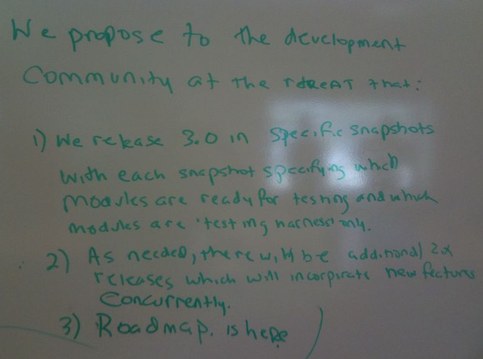 We propose to the development
Community at the retreat that:
1) We release 3.0 in specific snapshots
with each snapshot specifying which
modules are ready for testing and which
modules are "testing harness" only.
2) As needed, there will be additional 2.x
releases which will incorporate new features
concurrently.
3) Roadmap. is here